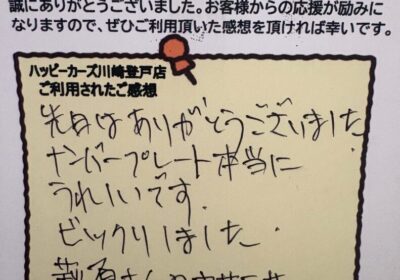 誠にありがとうございました。お客様からの応援が励みに
なりますので、ぜひご利用頂いた感想を頂ければ幸いです。
ハッピーカーズ川崎登戸店
ご利用されたご感想
先日はありがとうございました
ナンバープレート本当に
うれしいです.
ビックリしました.
さんの